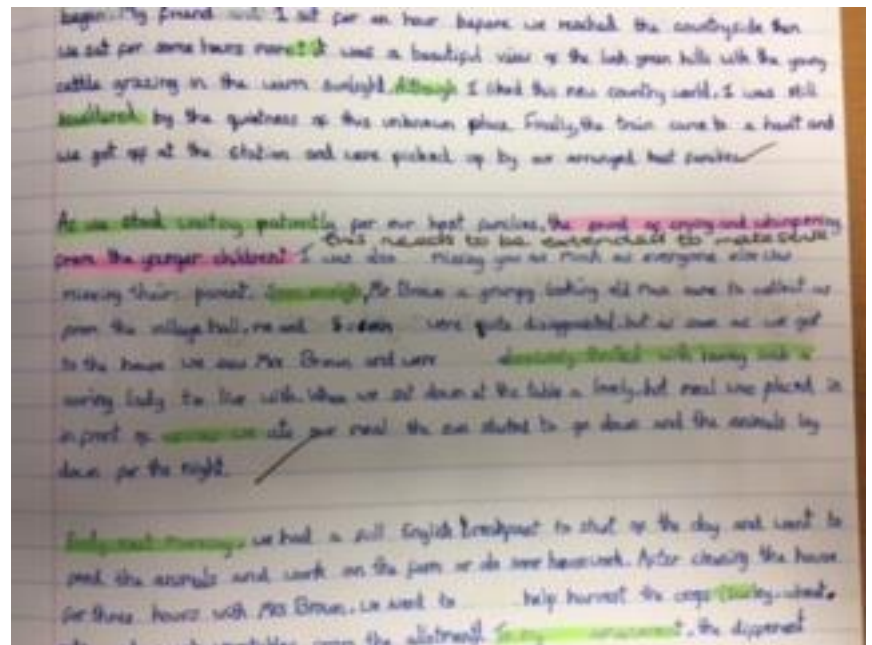 began. My friend and I sat for an hour before we reached the countryside then
we sat for some hours more. It was a beautiful view of the lush green hills with the young
cattle grazing in the warm sunlight. Although I liked this new country world, I was still
by the quietness of this unknown place. Finally, the train came to a hault and
we got off at the station and were picked up by our arranged host families
As we stood waiting patiently for our host families, the sound of crying and whimpering
this needs to be extended to make sense
from the younger children! I was also missing you as much as everyone else was
missing their parent. Mr Brown a grumpy looking old man came to collect us
from the village hall, me and were quite disappointed but as soon as we got
to the house we saw Mrs Brown and were thrilled with having such a
caring lady to live with. When we sat down at the table a lovely, hot meal was placed in
in front of we ate our meal the sun started to go down and the animals lay
down for the night.
Early next morning, we had a full English breakfast to start of the day and went to
feed the animals and work on the farm or do some housework. After cleaning the house
for three hours with Mrs Brown, we went to help harvest the crops wheat,
vegetables from the allotment. To my amazement, the different